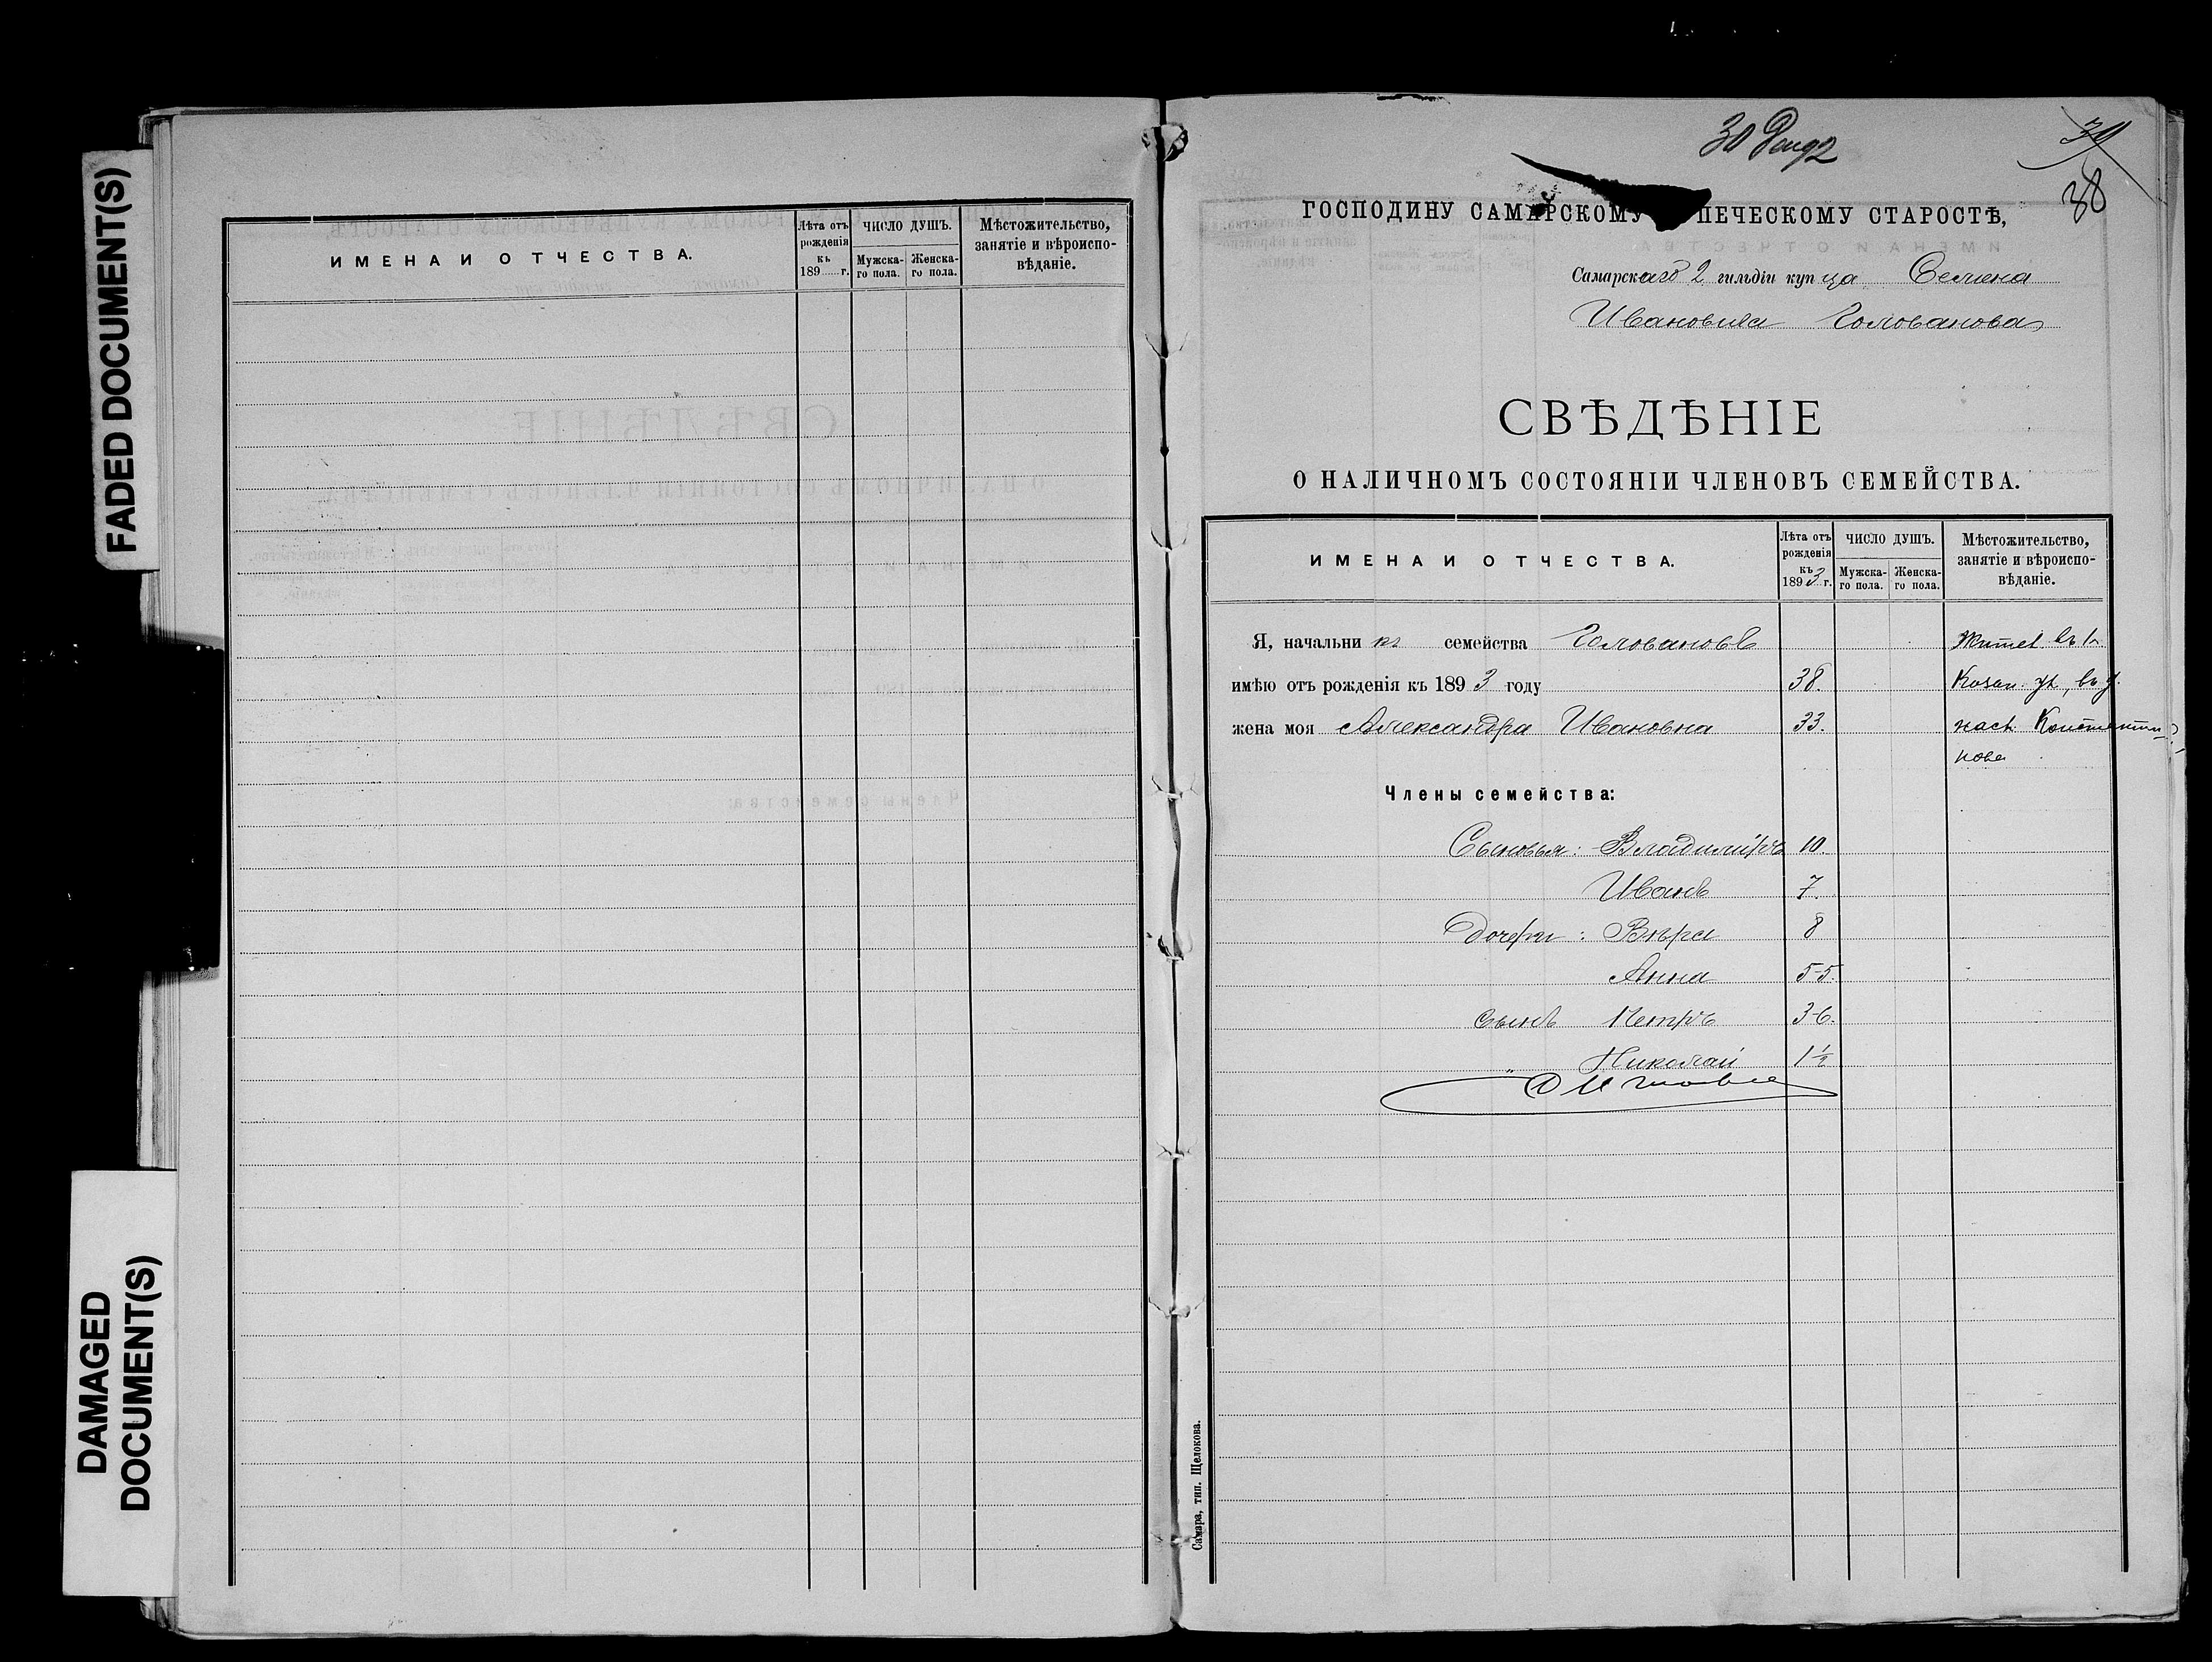 FADED DOCUMENT(S)
DAMAGED
DOCUMENT(S)
ИМЕНА И ОТЧЕСТВА.
Лѣта отъ рожденія къ 189 г.
ЧИСЛО ДУШЪ.
Мужска-го пола.
Женска-го пола.
Мѣстожительство, занятіе и вѣроиспо-вѣданіе.
30
38
ГОСПОДИНУ САМАРСКОМУ ПЕЧЕСКОМУ СТАРОСТѢ,
Самарскаго 2 гильдіи купца Семена
Ивановича Голованова
СВѢДѢНІЕ
О НАЛИЧНОМЪ СОСТОЯНІИ ЧЛЕНОВЪ СЕМЕЙСТВА.
ИМЕНА И ОТЧЕСТВА.
Лѣта отъ рожденія къ 1893 г.
ЧИСЛО ДУШЪ.
Мужска-го пола.
Женска-го пола.
Мѣстожительство, занятіе и вѣроиспо-вѣданіе.
Я, начальникъ семейства Головановъ
имѣю отъ рожденія къ 1893 году 38.
жена моя Александра Ивановна 33.
Члены семейства:
Сыновья: Владиміръ 10.
Иванъ 7.
Дочери: Вѣра 8
Анна 5-5.
сынъ Петръ 3-6.
" Николай 1 1/2
Самара, тип. Щелокова.